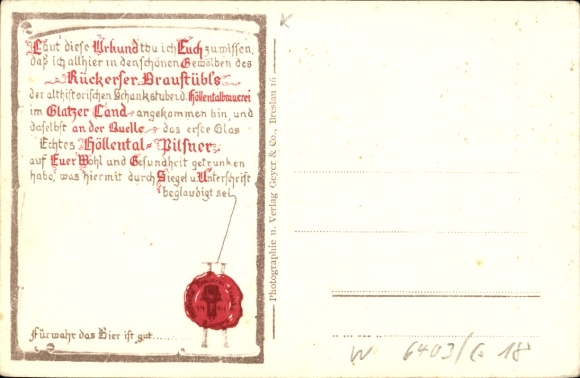 Laut diese Urkund thu ich Euch zu wissen,
daß ich allhier in den schönen Gewölben des
Rückerser Braustübls
der althistorischen Schankstube i.d. Höllentalbrauerei
im Glatzer Land angekommen bin, und
daselbst an der Quelle das erste Glas
Echtes Höllental-Pilsner
auf Euer Wohl und Gesundheit getrunken
habe, was hiermit durch Siegel u. Unterschrift
beglaubigt sei
Fürwahr das Bier ist gut......
Photographie u. Verlag Geyer & Co., Breslau 16
K
W 6403/G 18